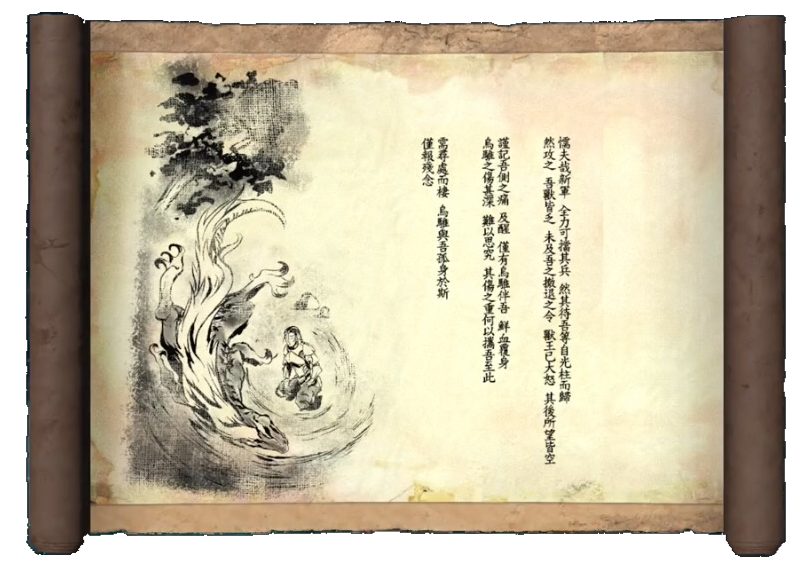 懦夫哉新軍 全力可擋其兵 然其待吾等自光柱而歸
然攻之 吾獸皆乏 未及吾之撤退之令 獸王已大怒 其後所望皆空
謹記吾側之痛 及醒 僅有烏騅伴吾 鮮血覆身
烏騅之傷甚深 難以思究 其傷之重何以攜吾至此
需尋處而棲 烏騅與吾孤身於斯
僅報殘念